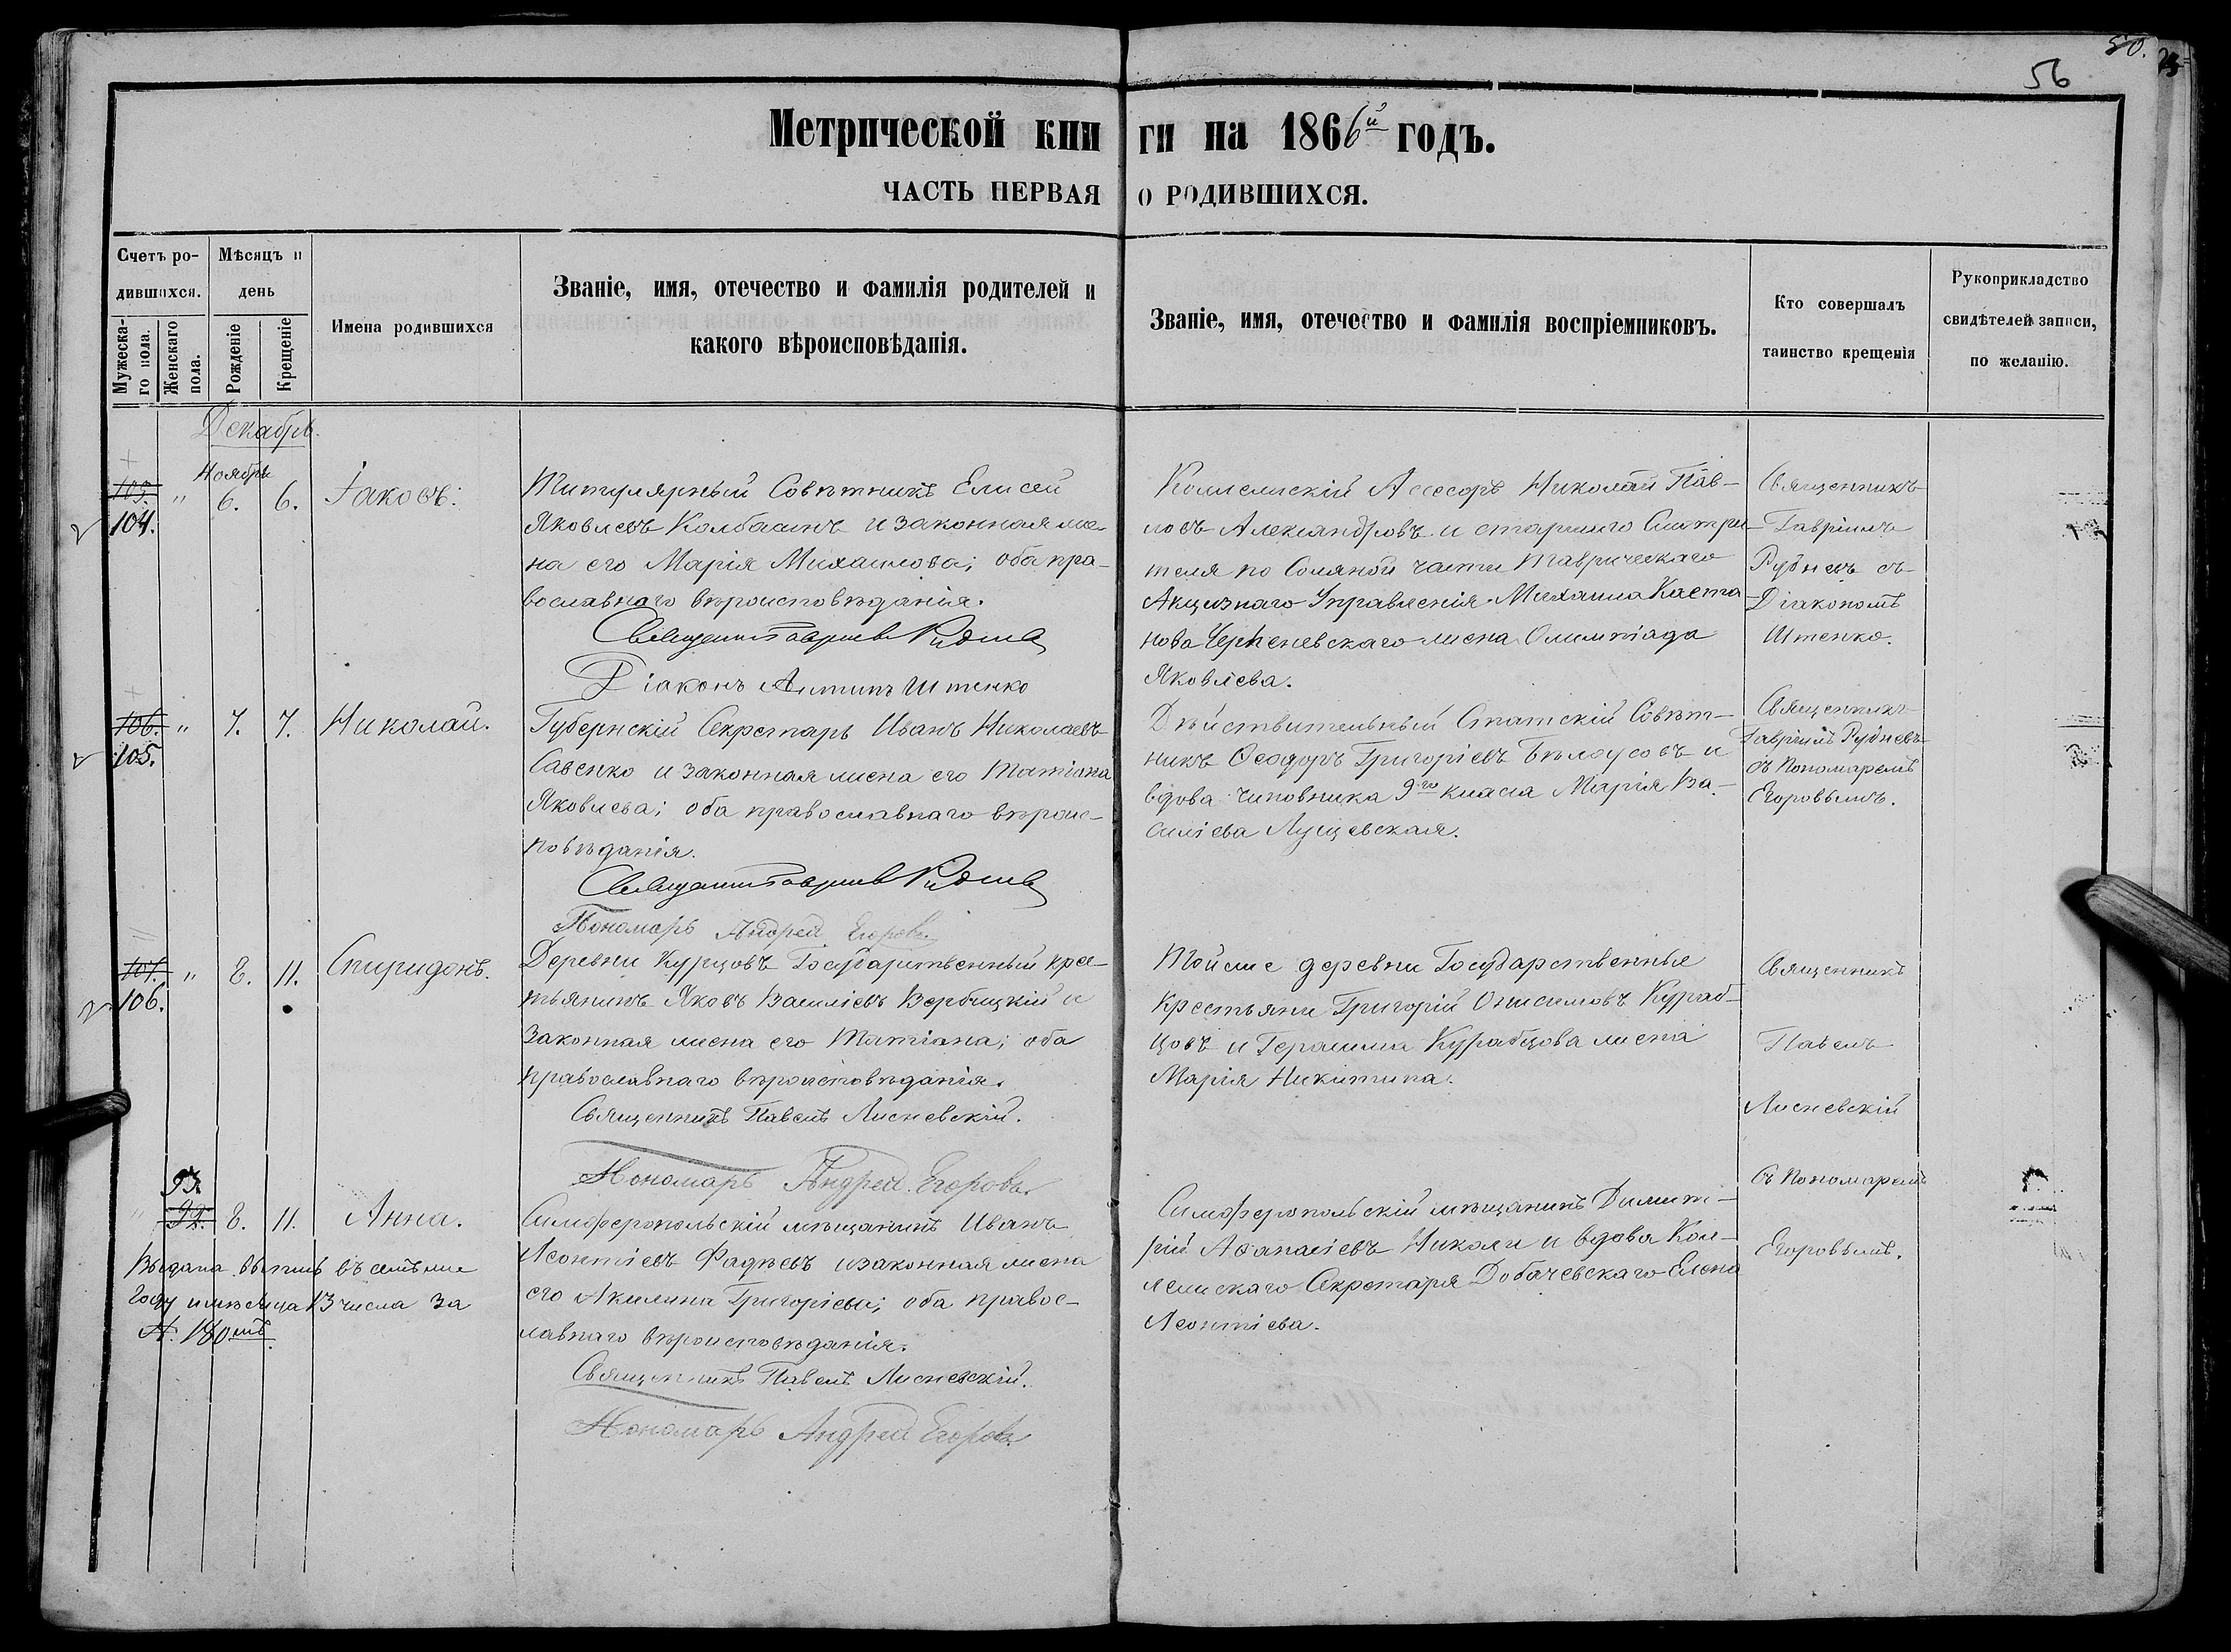 50.
56
Метрической кни ги на 1866й годъ.
ЧАСТЬ ПЕРВАЯ О РОДИВШИХСЯ.
Счетъ ро-
дившихся.
Мужеска-
го пола.
Женскаго
пола.
Мѣсяцъ и
день
Рожденіе
Крещеніе
Имена родившихся
Званіе, имя, отечество и фамилія родителей и
какого вѣроисповѣданія.
Званіе, имя, отечество и фамилія воспріемниковъ.
Кто совершалъ
таинство крещенія
Рукоприкладство
свидѣтелей записи,
по желанію.
Декабрь.
Ноября
105. " 6. 6. Іаковъ.
104.
Титулярный Совѣтникъ Елисей
Яковлевъ Колбасинъ и законная же-
на его Марія Михаилова; оба пра-
вославнаго вѣроисповѣданія.
Священникъ Гавріилъ Рудневъ
Діаконъ Антипъ Штенко
Коллежскій Ассесоръ Николай Пав-
ловъ Александровъ и старшаго Смотри-
теля по Соляной части Таврическаго
Акцизнаго Управленія Михаила Каста-
нова Черненевскаго жена Олимпіада
Яковлева.
Священникъ
Гавріилъ
Рудневъ съ
Діакономъ
Штенко.
106. " 7. 7. Николай.
105.
Губернскій Секретарь Иванъ Николаевъ
Савенко и законная жена его Татіана
Яковлева; оба православнаго вѣроис-
повѣданія.
Священникъ Гавріилъ Рудневъ
Пономарь Андрей Егоровъ
Дѣйствительный Статскій Совѣт-
никъ Ѳеодоръ Григоріевъ Бѣлоусовъ и
вдова чиновника 9го класса Марія Ва-
силіева Лущевская.
Священникъ
Гавріилъ Рудневъ
съ Пономаремъ
Егоровымъ.
107. " 8. 11. Спиридонъ.
106.
Деревни Курцовъ Государственный крес-
тьянинъ Яковъ Василіевъ Вербицкій и
законная жена его Татіана; оба
православнаго вѣроисповѣданія.
Священникъ Павелъ Лисневскій.
Пономарь Андрей Егоровъ
Тойже деревни Государственные
Крестьяне Григорій Онисимовъ Кураб-
цовъ и Герасима Курабцова жена
Марія Никитина.
Священникъ
Павелъ
Лисневскій
съ Пономаремъ
Егоровымъ.
93
" 92. 8. 11. Анна.
Выдана выпись въ семъ же
году и мѣсяца 13 числа за
№ 180мъ.
Симферопольскій мѣщанинъ Иванъ
Леонтіевъ Фадѣевъ и законная жена
его Акилина Григоріева; оба правос-
лавнаго вѣроисповѣданія.
Священникъ Павелъ Лисневскій.
Пономарь Андрей Егоровъ
Симферопольскій мѣщанинъ Димит-
рій Аѳанасіевъ Николи и вдова Кол-
лежскаго Секретаря Добачевскаго Елена
Леонтіева.